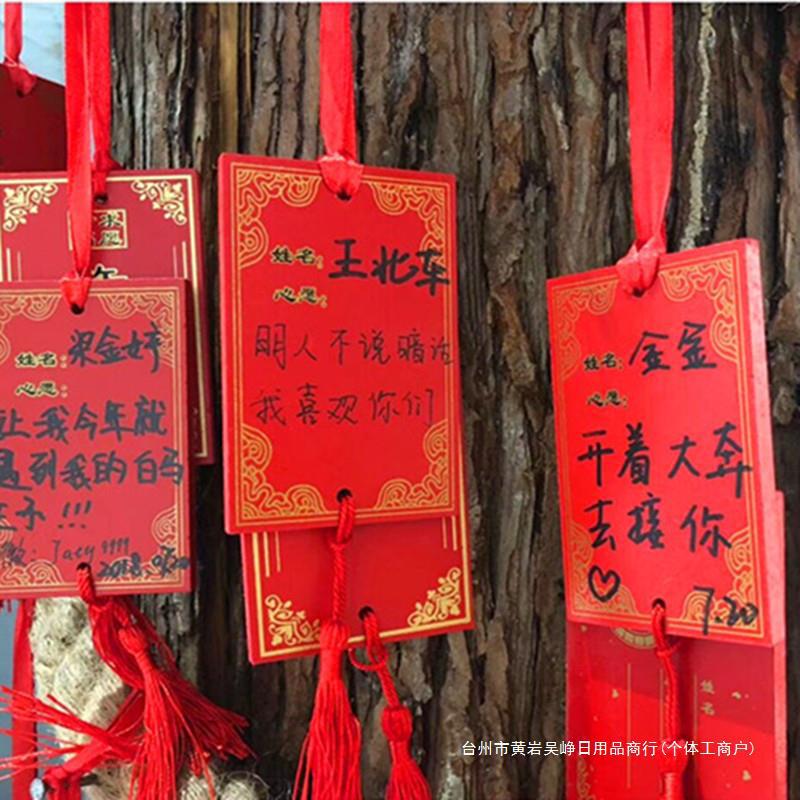 姓名：梁金婷
心愿：
让我今年就
遇到我的白马
王子!!!
姓名：王北车
心愿：
明人不说暗话
我喜欢你们
姓名：金宝
心愿：
开着大奔
去接你
♡ 7.20
姓名
台州市黄岩吴峥日用品商行(个体工商户)